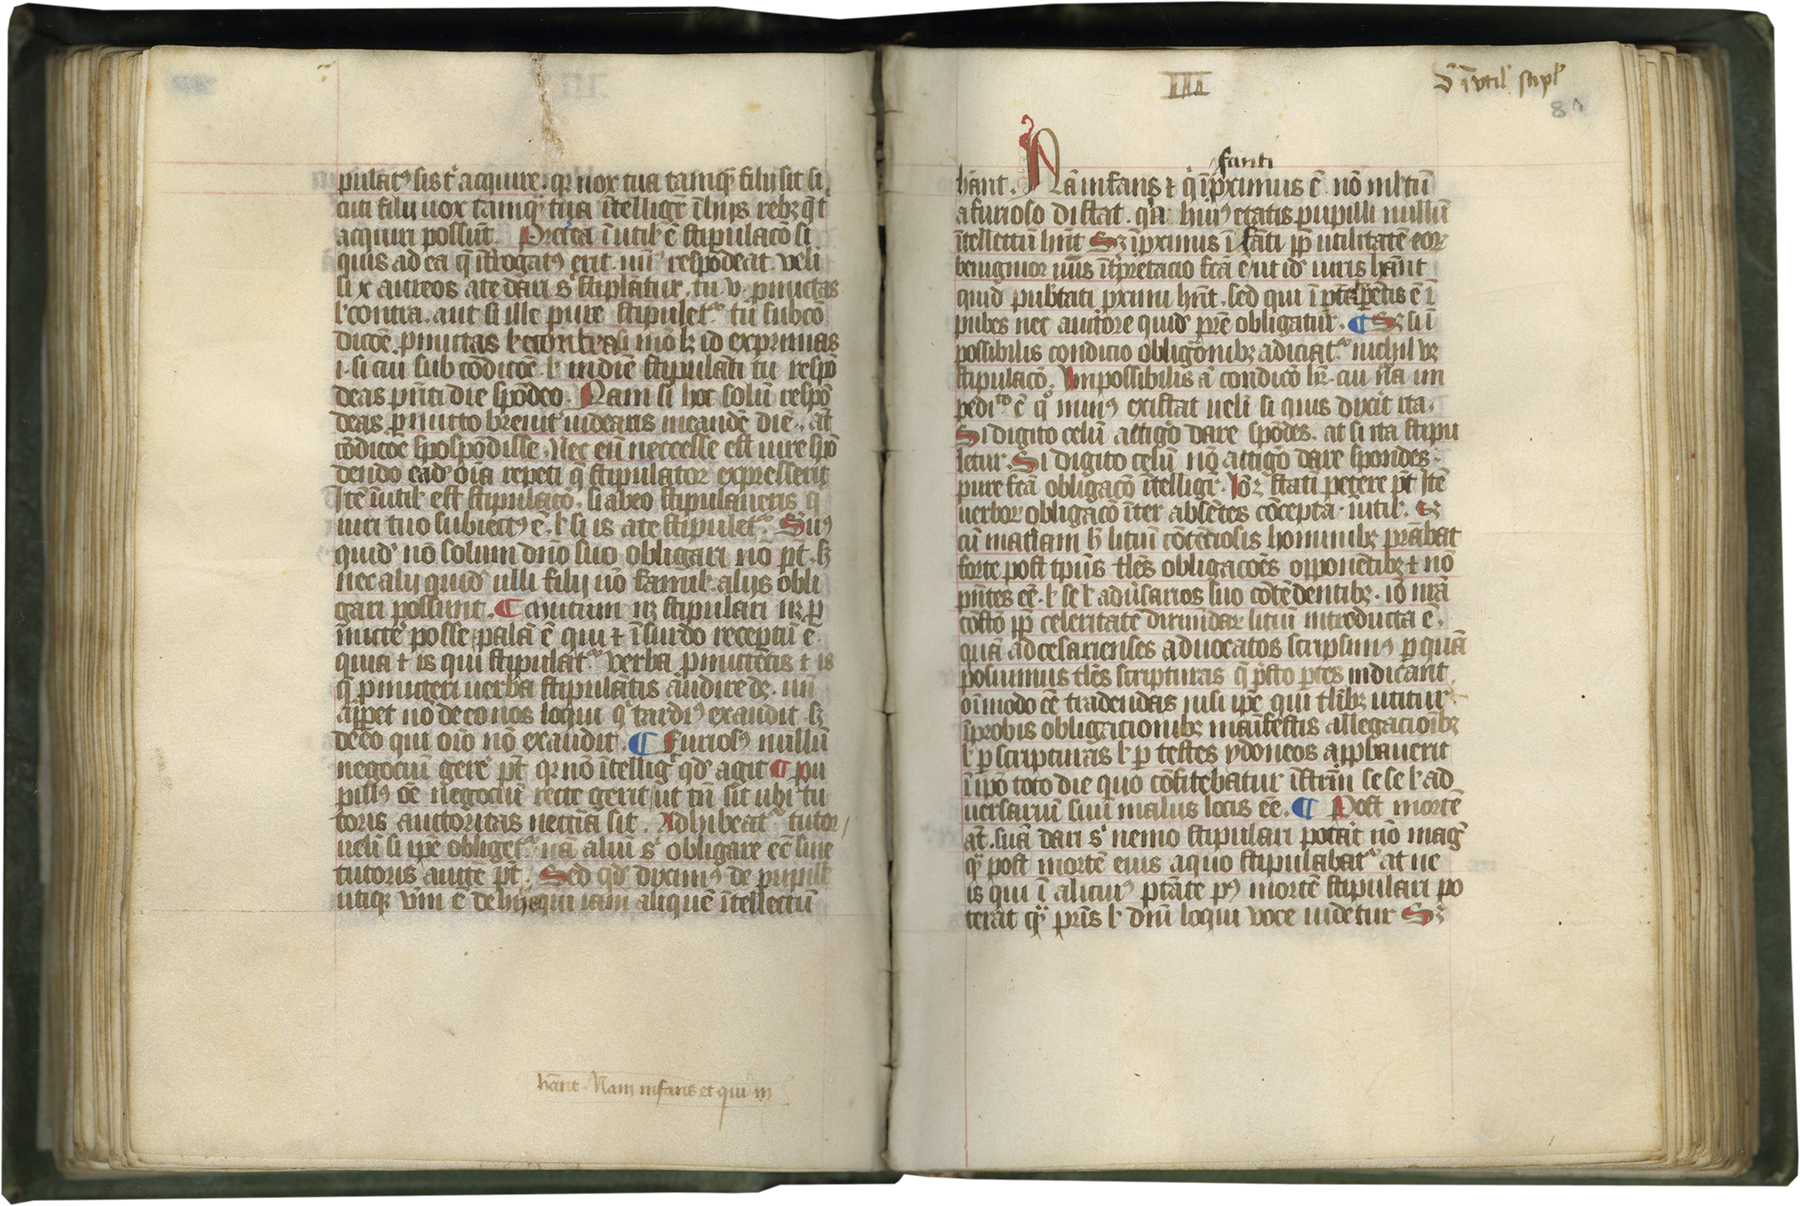 pulat⁹ sis t᷒ acquire. qꝛ uox tua tamqᷓ filij sit si
cuti filij uox tamqᷓ tua ītelligit᷒ ī hijs rebꝫ q̄ t᷒
acquiri possūt. Pretea īutił ē stipulacō si
quis ad ea q̄ īt̄rogat⁹ erit. nū᷒ respōdeat. velí
si x aureos a te dari s᷒ stiplatur. tu v. p̱mictas
ł econtra. aut si ille pure stipulet᷒. tu sub cō
dicōe. p̱mictas ł econtra si mō sꝫ id exprimas
.i. si cui sub cōdicōe. ł in diē stipulāti tu respō
deas p̄nti die spōdeo. Nam si hoc solū respō
deas. p̱micto breuit᷒ uidearis in eandē diē. at
cōdicōe spospōdisse. Nec eī neccesse est ī re spō
dendo ead᷒ oīa repeti q̄ stipulator expresserit
Itē īutił est stipulacō. si ab eo stipulaueris q᷒
iuri tuo subiect⁹ ē. ł si is a te stipulet᷒. Seru⁹
quid᷒ nō solum dn̄o suo obligari nō pt̄. sꝫ
nec alij quid᷒ ulli filij u᷒o famił. alijs obli
gari possunt. ¶ Mutum nꝫ stipulari nꝫ p̱
mictē posse palā ē qui ⁊ ī surdo receptū ē.
quia ⁊ is qui stipulat᷒ verba p̱mictētis ⁊ is
q᷒ p̱mictit uerba stipulātis audire dꝫ. uñ
appet nō de eo nos loqui q᷒ tardi⁹ exaudit sꝫ
de eo qui oīo nō exaudit. ¶ Furios⁹ nullū
negociū gere᷒ pt̄ qꝛ nō ītellig᷒ qd᷒ agit ¶ pu
pill⁹ oē negociū recte gerit ut tn̄ sit ubi tu
toris auctoritas neccīa sit. Adhibeat᷒ tutor /
ueli si ip̄e obliget᷒. nā aliū s᷒ obligare ec̄ sine
tutoris aucte᷒ pt̄. Sed qd᷒ diximus de pupilł
utiqꝫ v᷒m ē de hijs qui iam aliquē ītellectū
hn̄t Nam infans et qui in
III
S᷒ īutił stipł
80
fanti
hn̄t. Nā infans ⁊ q᷒ īp̱ximus ē nō ml̄tū
a furioso distat. qꝛ hui⁹ etatis pupilli nullū
ītellectū hn̄t Sꝫ īp̱ximus ī fāti p̱p utilitatē eoꝝ
benignior iuris īt̄pretacio fc̄ā ē ut id᷒ iuris hn̄t
quid pubtati p̱ximi hn̄t. sed qui ī pt̄ate pēntis ē ī
pubes nec auctore quid᷒ p̄re obligatur. ¶ Sꝫ si ī
possibilis condicio obligōnibꝫ adiciat᷒ nichil vꝫ
stipulacō. Impossibilis a᷒ condicō hr̄. cui n̄a im
pedi᷒o ē q᷒ min⁹ existat ueli si quis dixit ita.
Si digito celū attigo dare spōdes. at si ita stipu
letur. Si digito celū nō attigo dare spondes.
pure fc̄ā obligacō ītelligit᷒. Iōꝫ stati petere pt̄ Itē
uerboꝝ obligacō īter absētes cōcepta. īutił. Sꝫ
cū matiam hꝫ litiū cōtēciosis hominibꝫ p̄bebat
forte post tp̄us tłes obligacōes opponētibꝫ ⁊ nō
p̄ntes eē. ł se ł adu᷒sarios suo cōtēdentibꝫ. iō n̄rā
cōsto p̱p celeritatē dirimdaꝝ litiū introducta ē.
quā ad cesarienses aduocatos scripsim⁹ p̱ quā
posuimus tłes scripturas q̄ p̄sto p̱tes indicant
oīmodo ec̄ tradendas nisi ip̄e qui tłibꝫ utitur
īprobis obligacionibꝫ maīfestis allegacioībꝫ
ł p̱ scripturās ł p̱ testes ydoneos app̱bauerit
ī ip̄o toto die quo cōfitebatur īst̄rm̄ se se ł ad
uersariū suū in alus locis eē. ¶ Post mortē
at᷒. suā dari s᷒ nemo stipulari potat᷒ nō mag᷒
qᷓ post mortē eius a quo stipulabat᷒ at ne
is qui ī alicui⁹ p̱tāte p᷒⁹ mortē stipulari po
terat qꝛ p̄ris ł dn̄i loqui voce uidetur Sꝫ